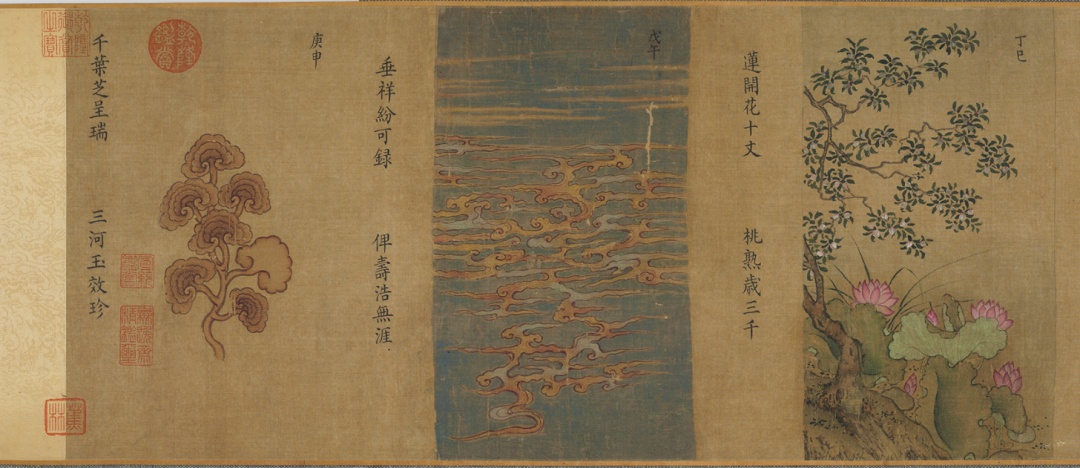 丁巳
蓮開花十丈　桃熟歲三千
戊午
垂祥紛可録　俾壽浩無涯
庚申
千葉芝呈瑞　三河玉效珍